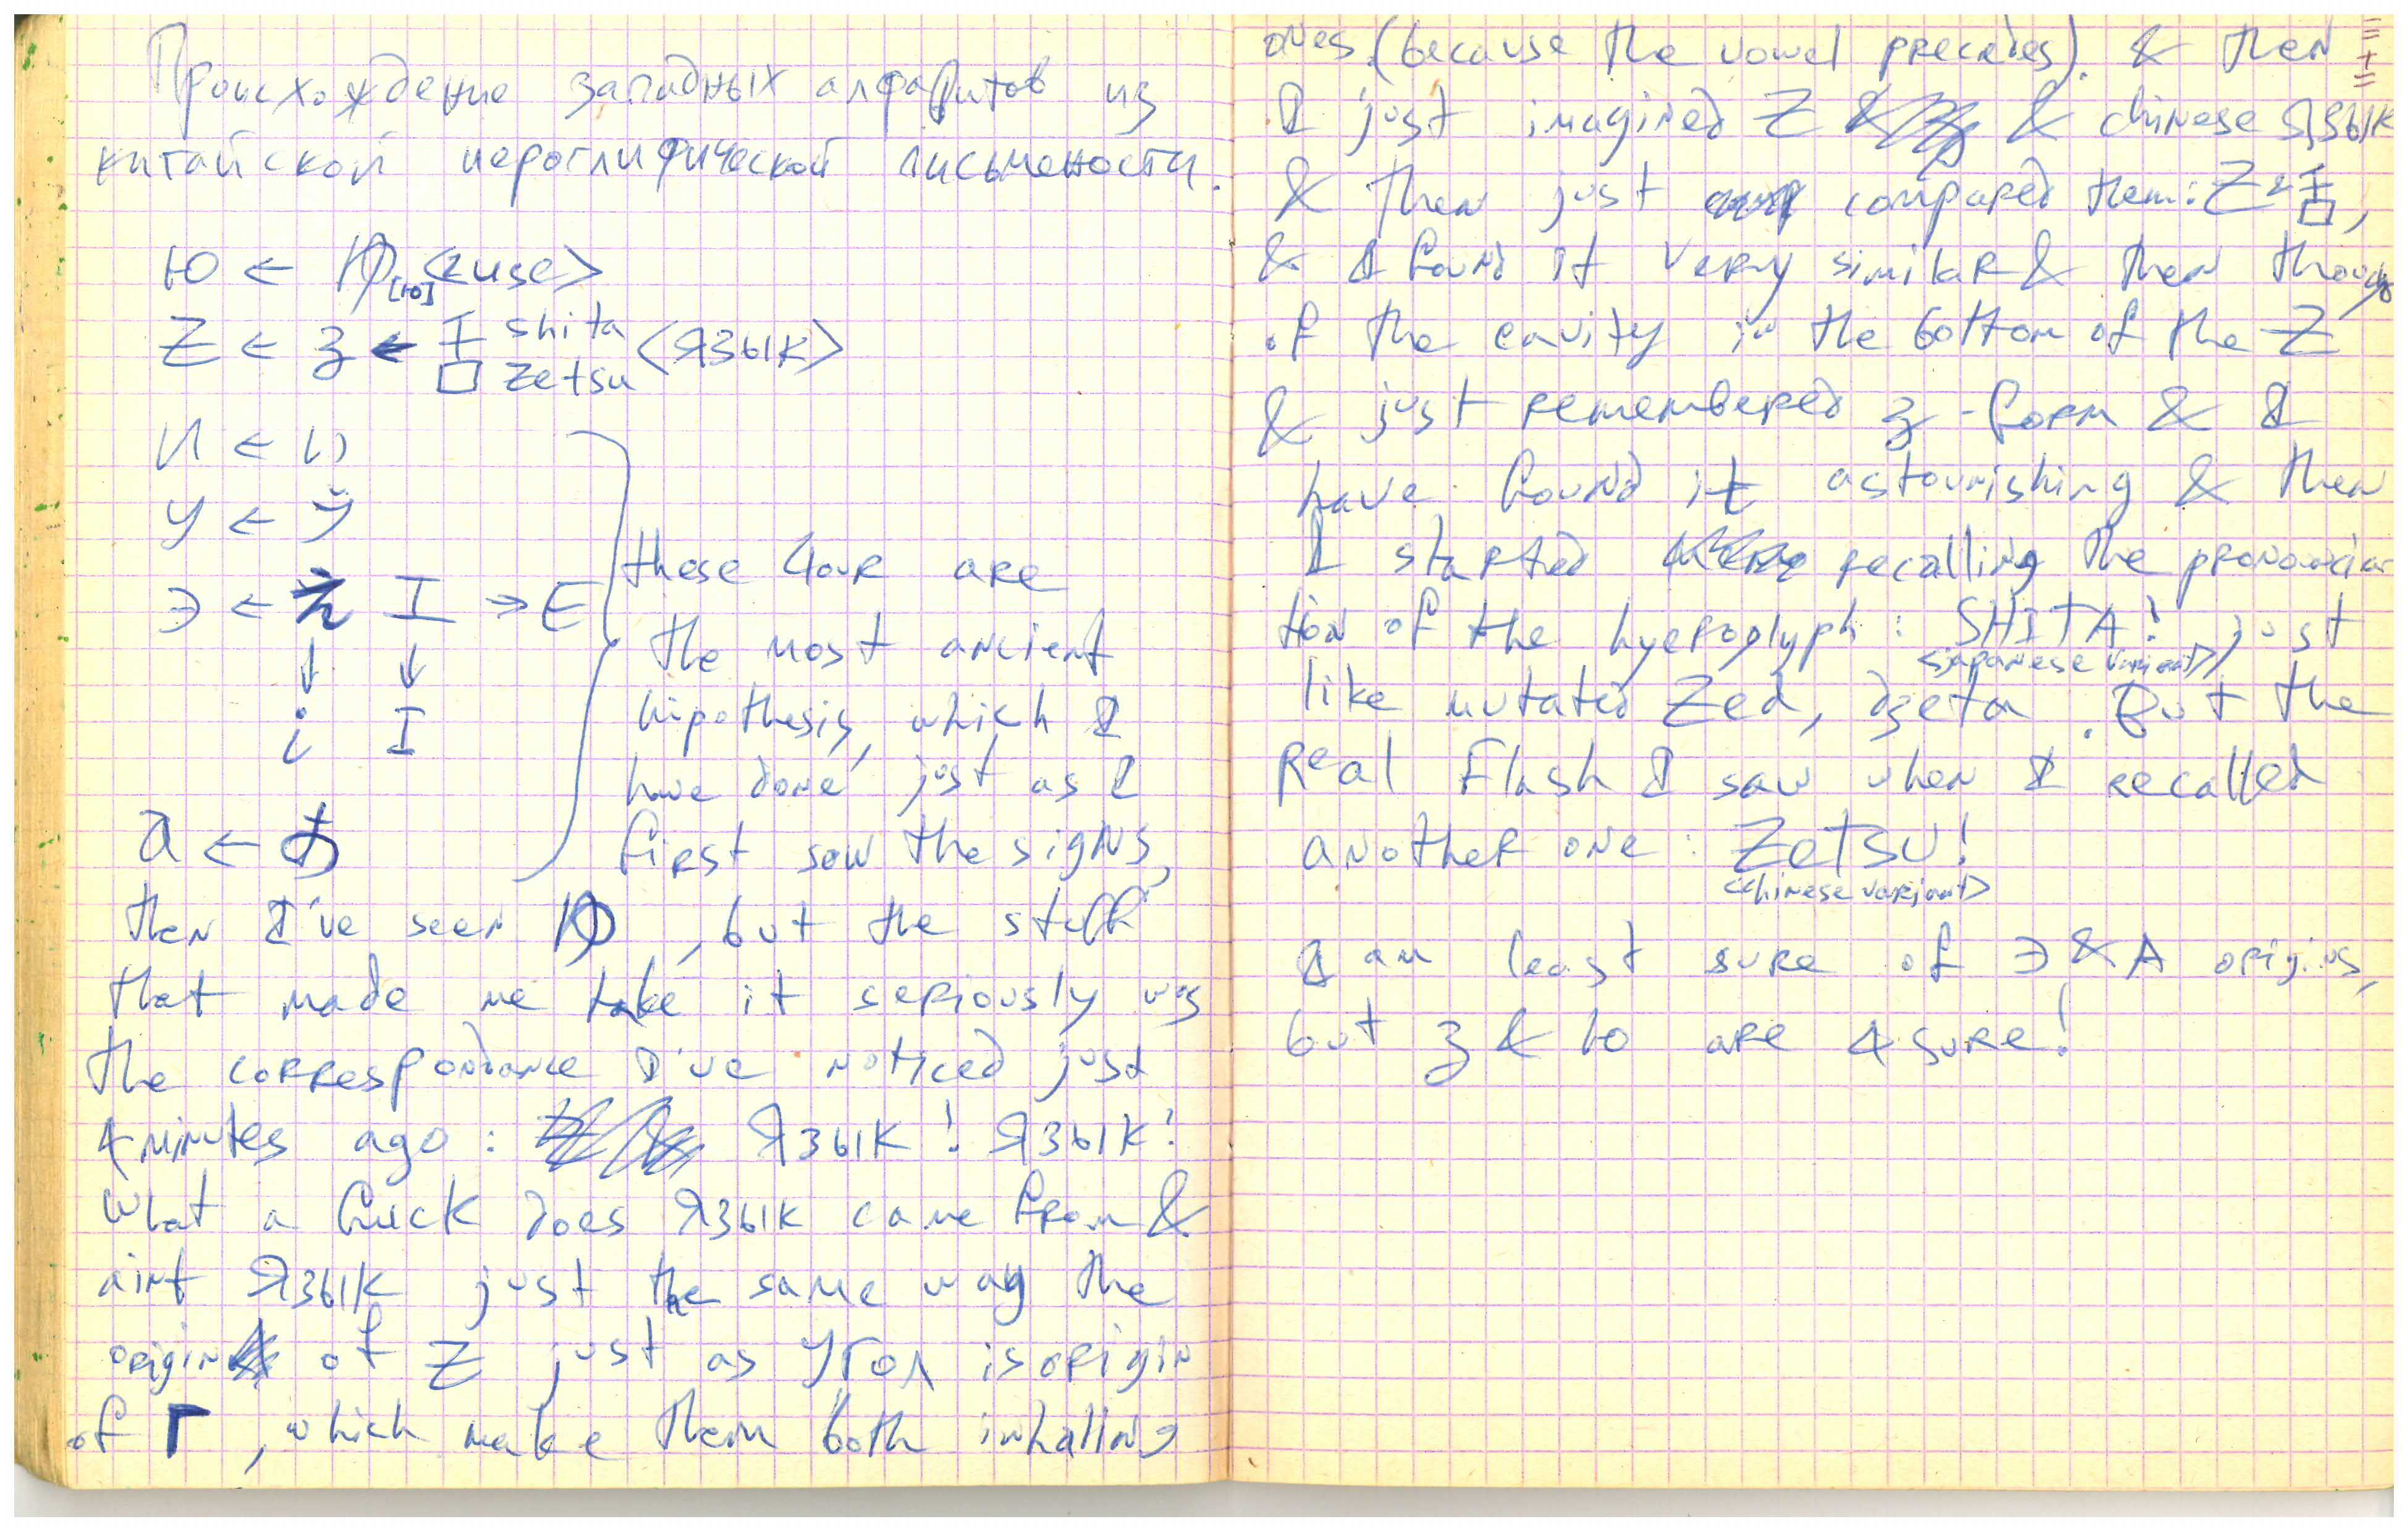 Происхождение западных алфавитов из
китайской иероглифической письмености.
Ю ← ゆ[ю] <use>
Z ← ʒ ← 舌 shita zetsu <ЯЗЫК>
И ← い
У ← う
Э ← え I → E
↓ ↓
i I
a ← あ
these four are
the most ancient
hipothesis, which I
have done, just as I
first saw the signs,
then I've seen ゆ, but the stuff
that made me take it seriously was
the correspondance I've noticed just
4 minutes ago: ЯЗЫК! ЯЗЫК!
What a fuck does ЯЗЫК came from &
aint ЯЗЫК just the same way the
origin of Z just as УГОЛ is origin
of Г, which make them both inhaling
ones (because the vowel precedes). & then
I just imagined Z & chinese ЯЗЫК
& then just compared them: Z & 舌,
& I found it very similar & then though
of the cavity in the bottom of the Z
& just remembered ʒ-form & I
have found it astourishing & then
I started recalling the pronouncia
tion of the hyeroglyph: SHITA! just
<japanese variant>
like mutated Zed, dzeta. But the
Real Flash I saw when I recalled
another one: Zetsu!
<chinese variant>
I am least sure of Э & A origins,
but ʒ & Ю are 4 sure!